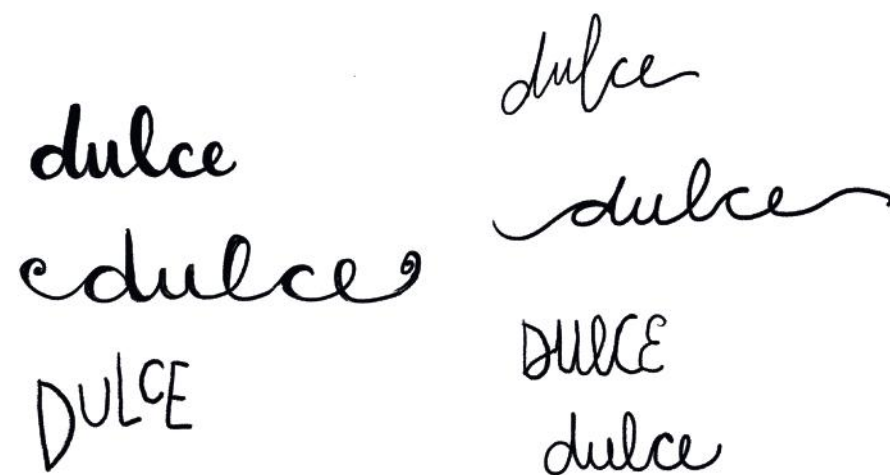 dulce
dulce
DULCE
dulce
dulce
DULCE
dulce